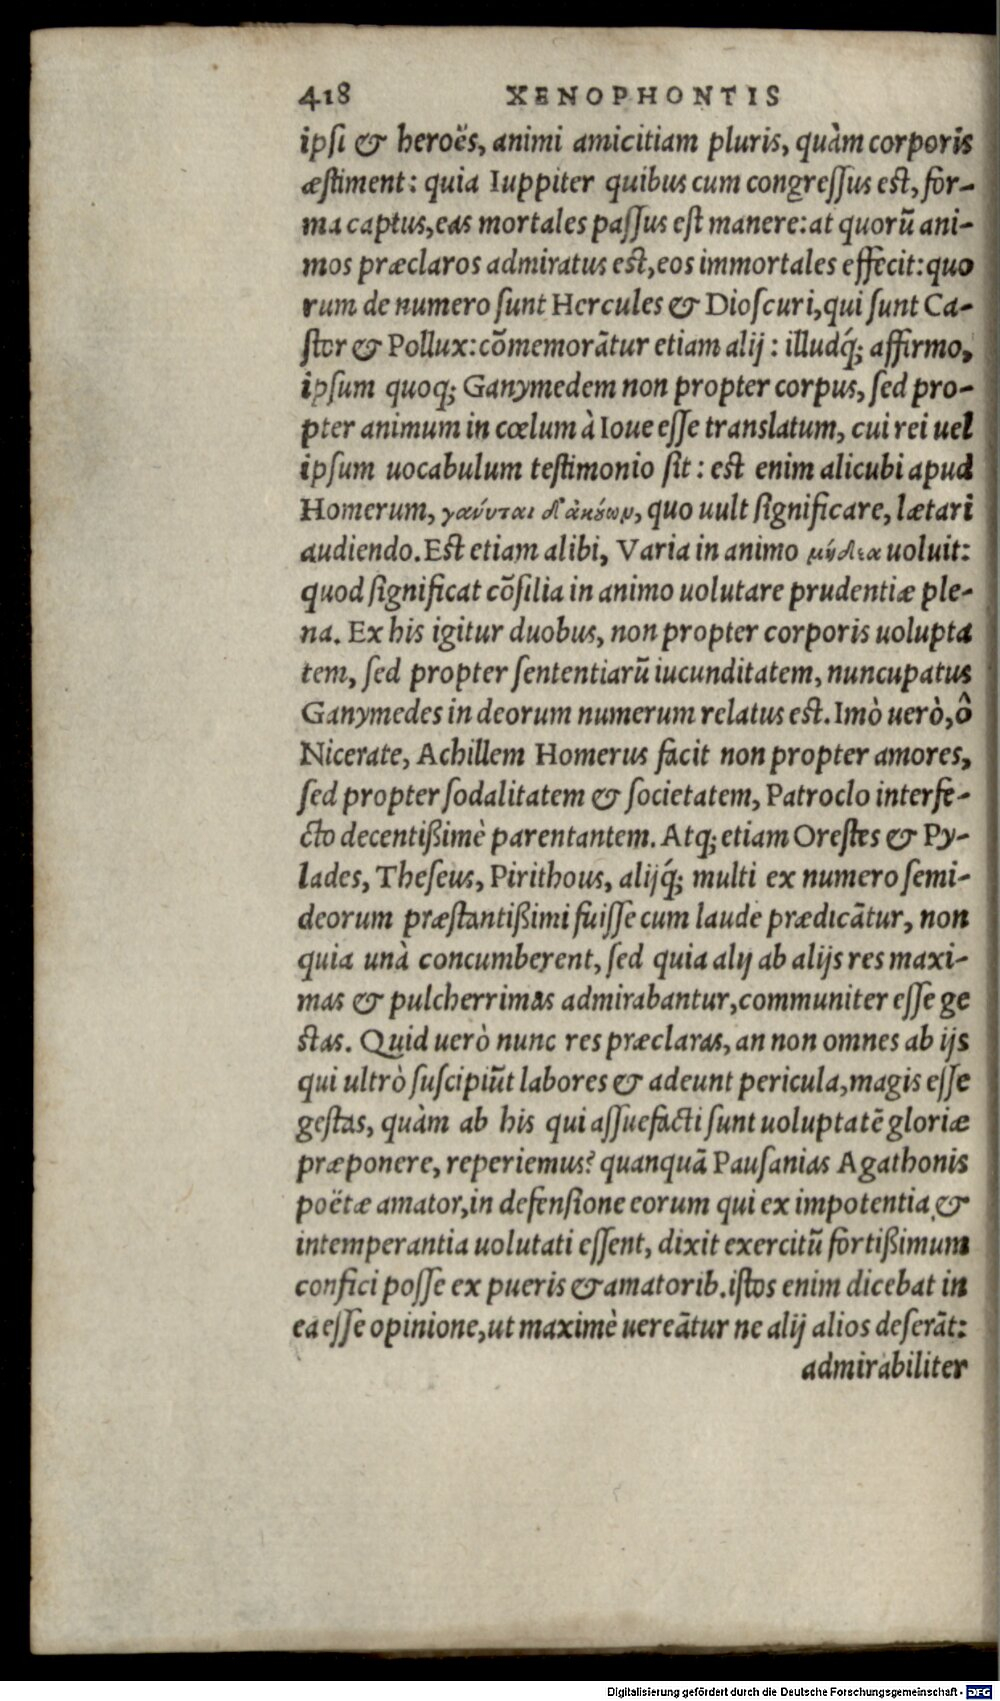 418 XENOPHONTIS
ipsi & heroës, animi amicitiam pluris, quàm corporis
æstiment: quia Iuppiter quibus cum congressus est, for-
ma captus, eas mortales passus est manere: at quorũ ani-
mos præclaros admiratus est, eos immortales effecit: quo
rum de numero sunt Hercules & Dioscuri, qui sunt Ca-
stor & Pollux: cõmemorãtur etiam alij: illudq́; affirmo,
ipsum quoq; Ganymedem non propter corpus, sed pro-
pter animum in cœlum à Ioue esse translatum, cui rei uel
ipsum uocabulum testimonio sit: est enim alicubi apud
Homerum, γαύνται δ'ἀκούων, quo uult significare, lætari
audiendo. Est etiam alibi, Varia in animo μήδεα uoluit:
quod significat cõsilia in animo uolutare prudentiæ ple-
na. Ex his igitur duobus, non propter corporis uolupta
tem, sed propter sententiarũ iucunditatem, nuncupatus
Ganymedes in deorum numerum relatus est. Imò uerò, ô
Nicerate, Achillem Homerus facit non propter amores,
sed propter sodalitatem & societatem, Patroclo interfe-
cto decentißimè parentantem. Atq; etiam Orestes & Py-
lades, Theseus, Pirithous, alijq́; multi ex numero semi-
deorum præstantißimi fuisse cum laude prædicãtur, non
quia unà concumberent, sed quia alij ab alijs res maxi-
mas & pulcherrimas admirabantur, communiter esse ge
stas. Quid uerò nunc res præclaras, an non omnes ab ijs
qui ultrò suscipiũt labores & adeunt pericula, magis esse
gestas, quàm ab his qui assuefacti sunt uoluptatẽ gloriæ
præponere, reperiemus? quanquã Pausanias Agathonis
poëtæ amator, in defensione eorum qui ex impotentia &
intemperantia uolutati essent, dixit exercitũ fortißimum
confici posse ex pueris & amatorib. istos enim dicebat in
ea esse opinione, ut maximè uereãtur ne alij alios deserãt:
admirabiliter
Digitalisierung gefördert durch die Deutsche Forschungsgemeinschaft - DFG